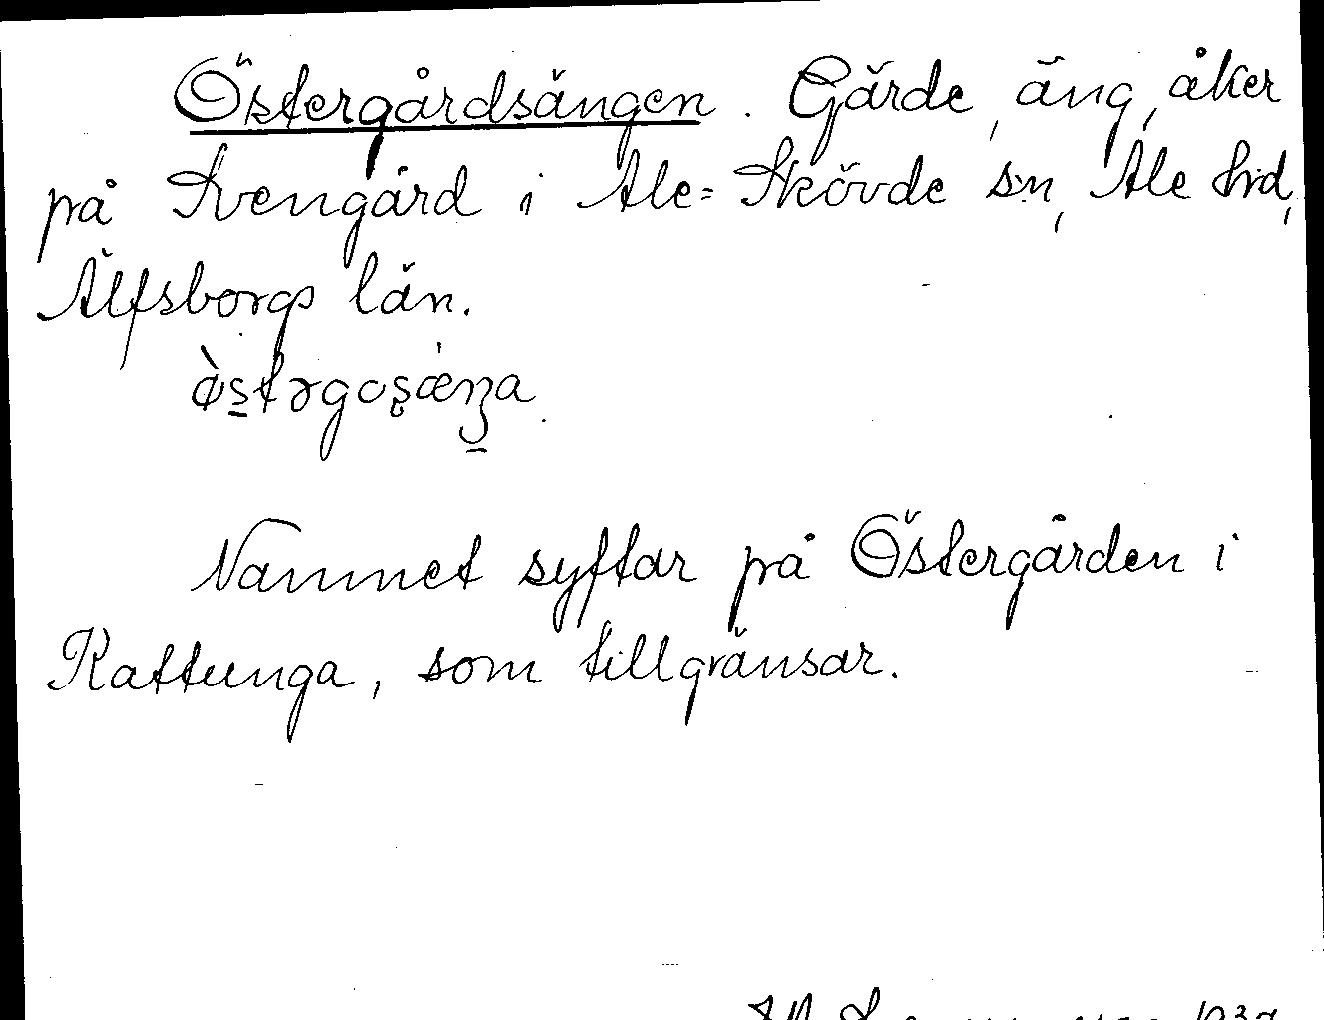 Östergårdsängen. Gärde, äng, åker
på Svengård i Ale-Skövde s:n, Ale h:d,
Älfsborgs län.
Namnet syftar på Östergården i
Kattunga, som tillgränsar.